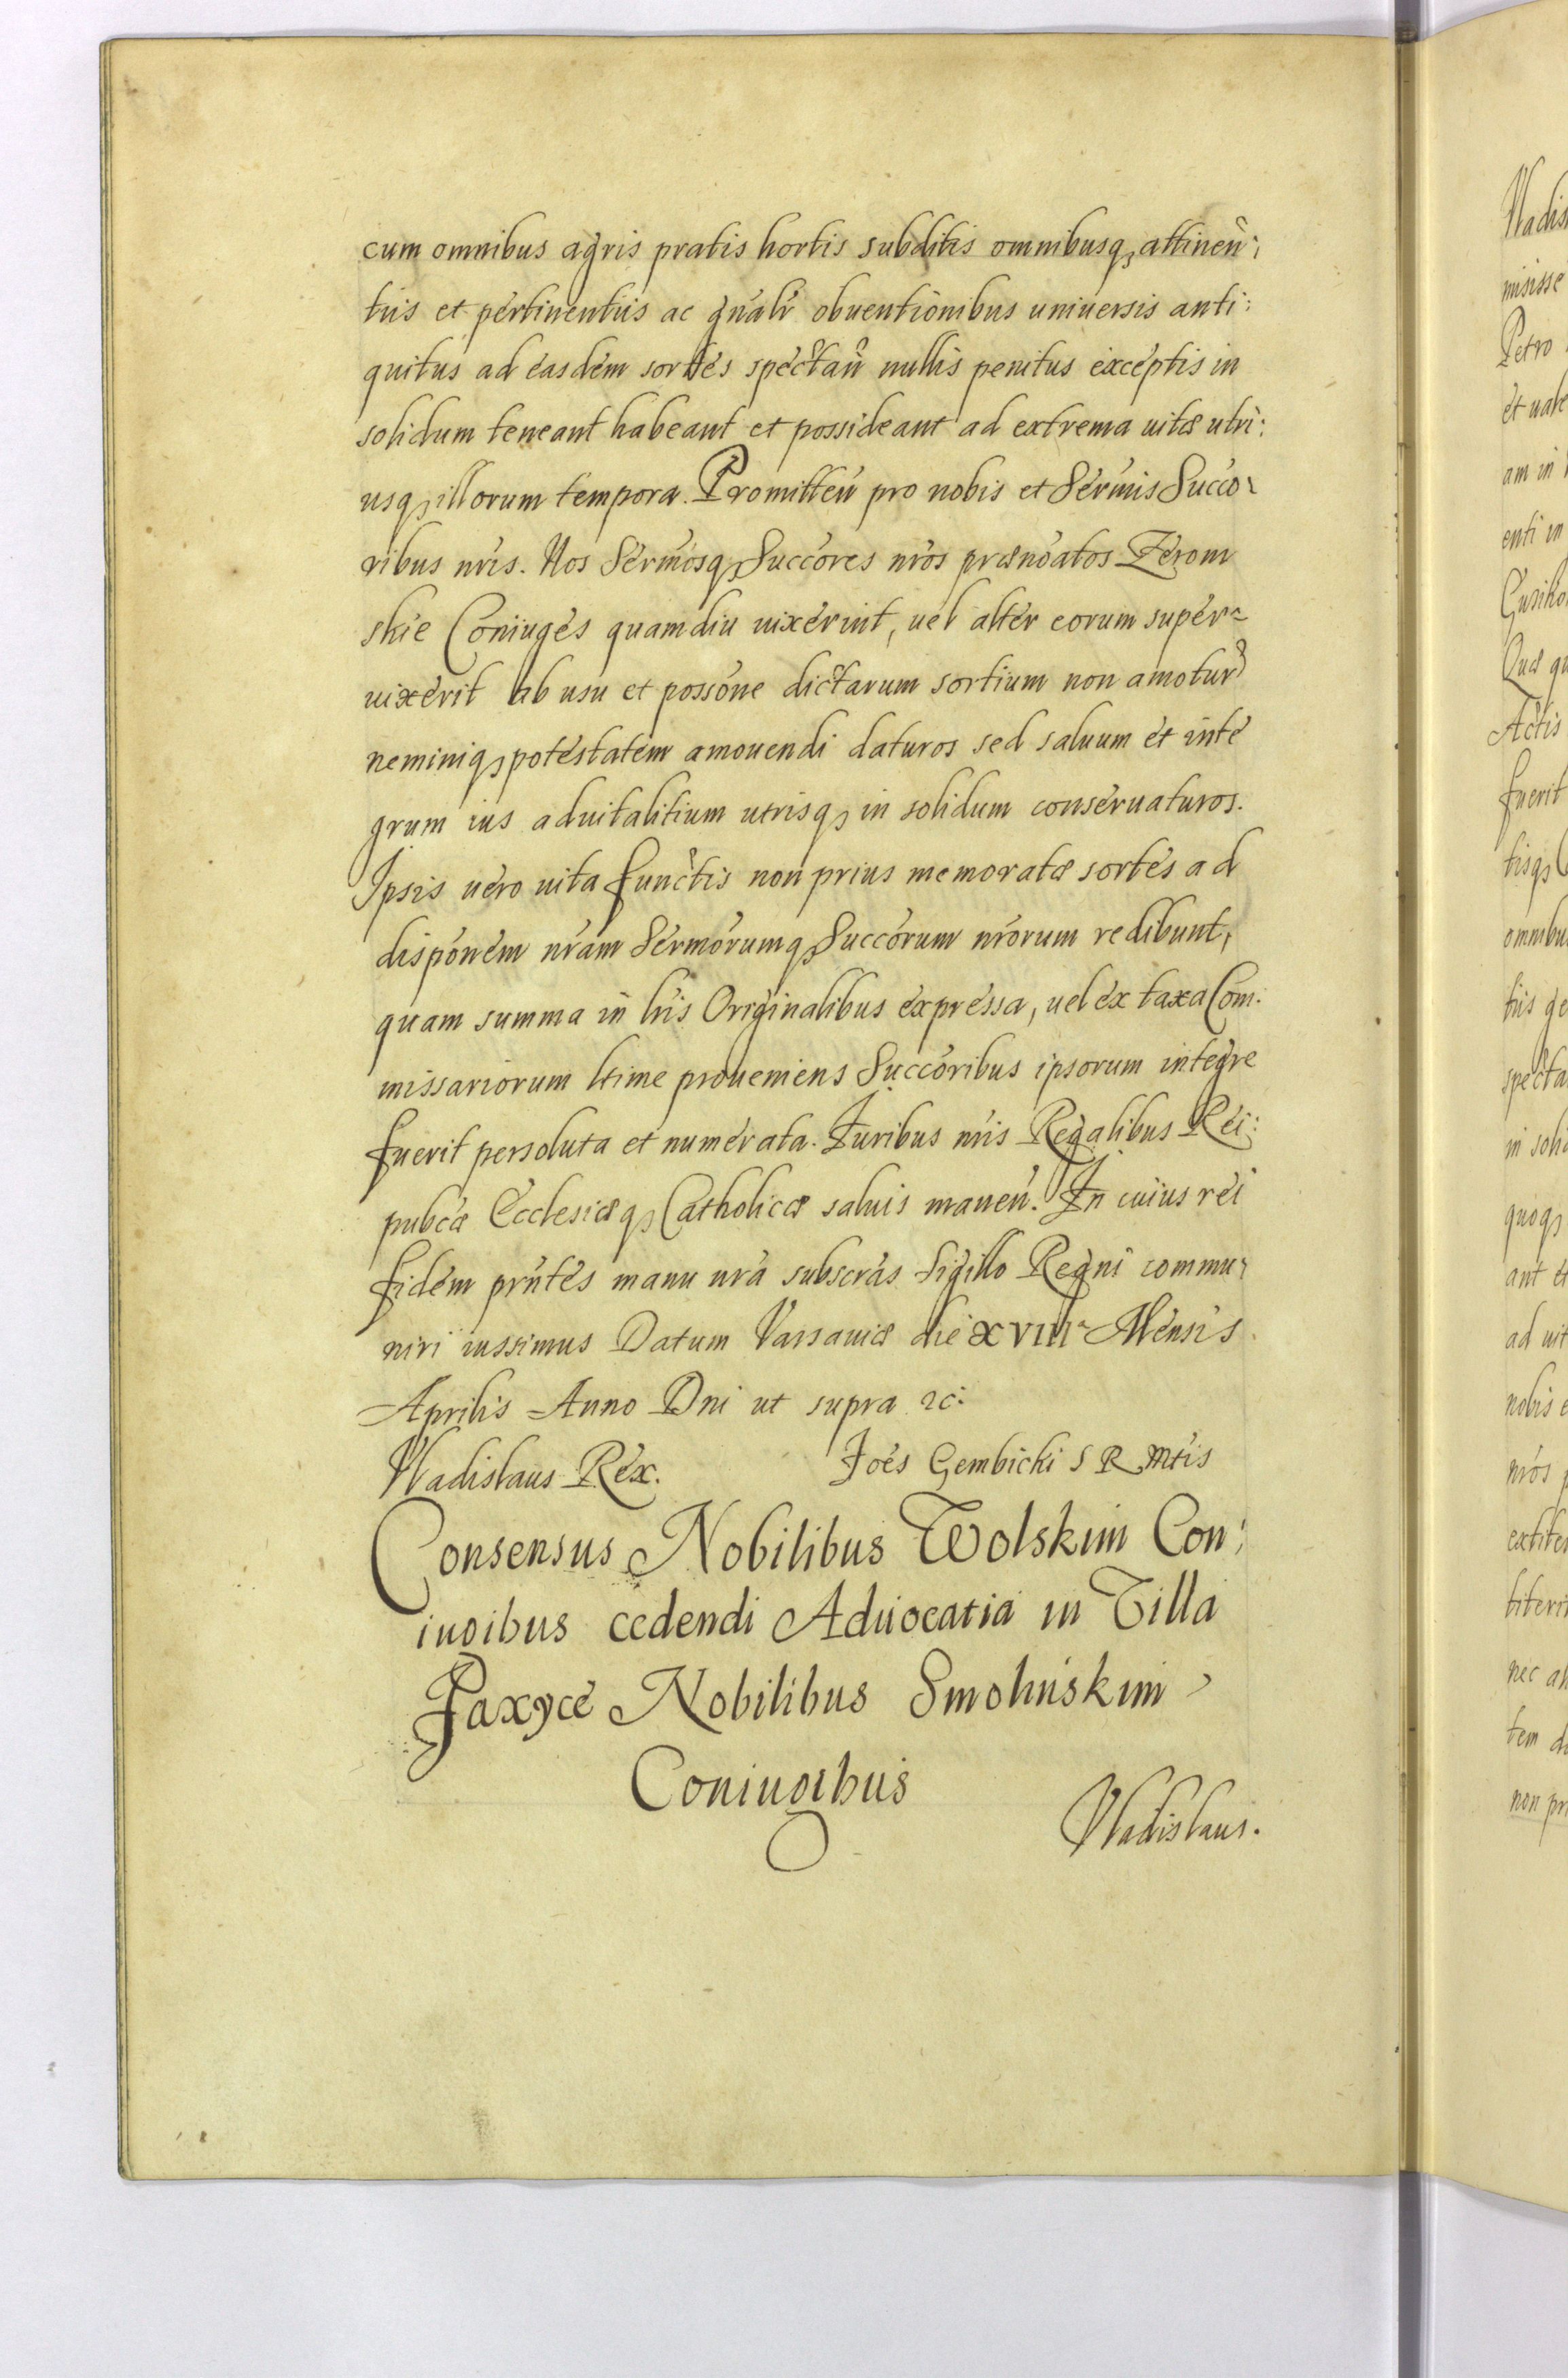 cum omnibus agris pratis hortis subditis omnibusq, attinen:
tiis et pertinentiis ac gnalr obuentionibus uniuersis anti:
quitus ad easdem sortes spectan nullis penitus exceptis in
solidum teneant habeant et possideant ad extrema uitæ utri:
usq, illorum tempora. Promitten pro nobis et Sermis Succo:
ribus nris. Nos Sermosq, Succores nros prænoatos Zerom
skie Coniuges quamdiu uixerint, uel alter eorum super=
uixerit ab usu et possone dictarum sortium non amotur
neminiq, potestatem amouendi daturos sed saluum et inte
grum ius aduitalitium utrisq, in solidum conseruaturos.
Ipsis uero uita functis non prius memoratæ sortes ad
disponem nram Sermorumq, Succorum nrorum redibunt,
quam summa in lris Originalibus expressa, uel ex taxa Com:
missariorum ltime proueniens Succoribus ipsorum integre
fuerit persoluta et numerata. Iuribus nris Regalibus Rei:
pubcæ Ecclesiæq, Catholicæ saluis manen. In cuius rei
fidem prntes manu nra subscras Sigillo Regni commu:
niri iussimus Datum Varsauiæ die XVIII Mensis
Aprilis Anno Dni ut supra &c:
Vladislaus Rex. Joes Gembicki S R Mtis
Consensus Nobilibus Wolskim Con:
iugibus cedendi Aduocatia in Villa
Paxyce Nobilibus Smolinskim
Coniugibus
Vladislaus.
Vladis
misisse
Petro
et uale
am in
enti in
Quæ qu
Actis
fuerit
tisq,
omnibu
tiis ge
specta
in soli
quoq,
ant et
ad uit
nobis e
nros p
extite
titeri
nec al
tem d
non pr